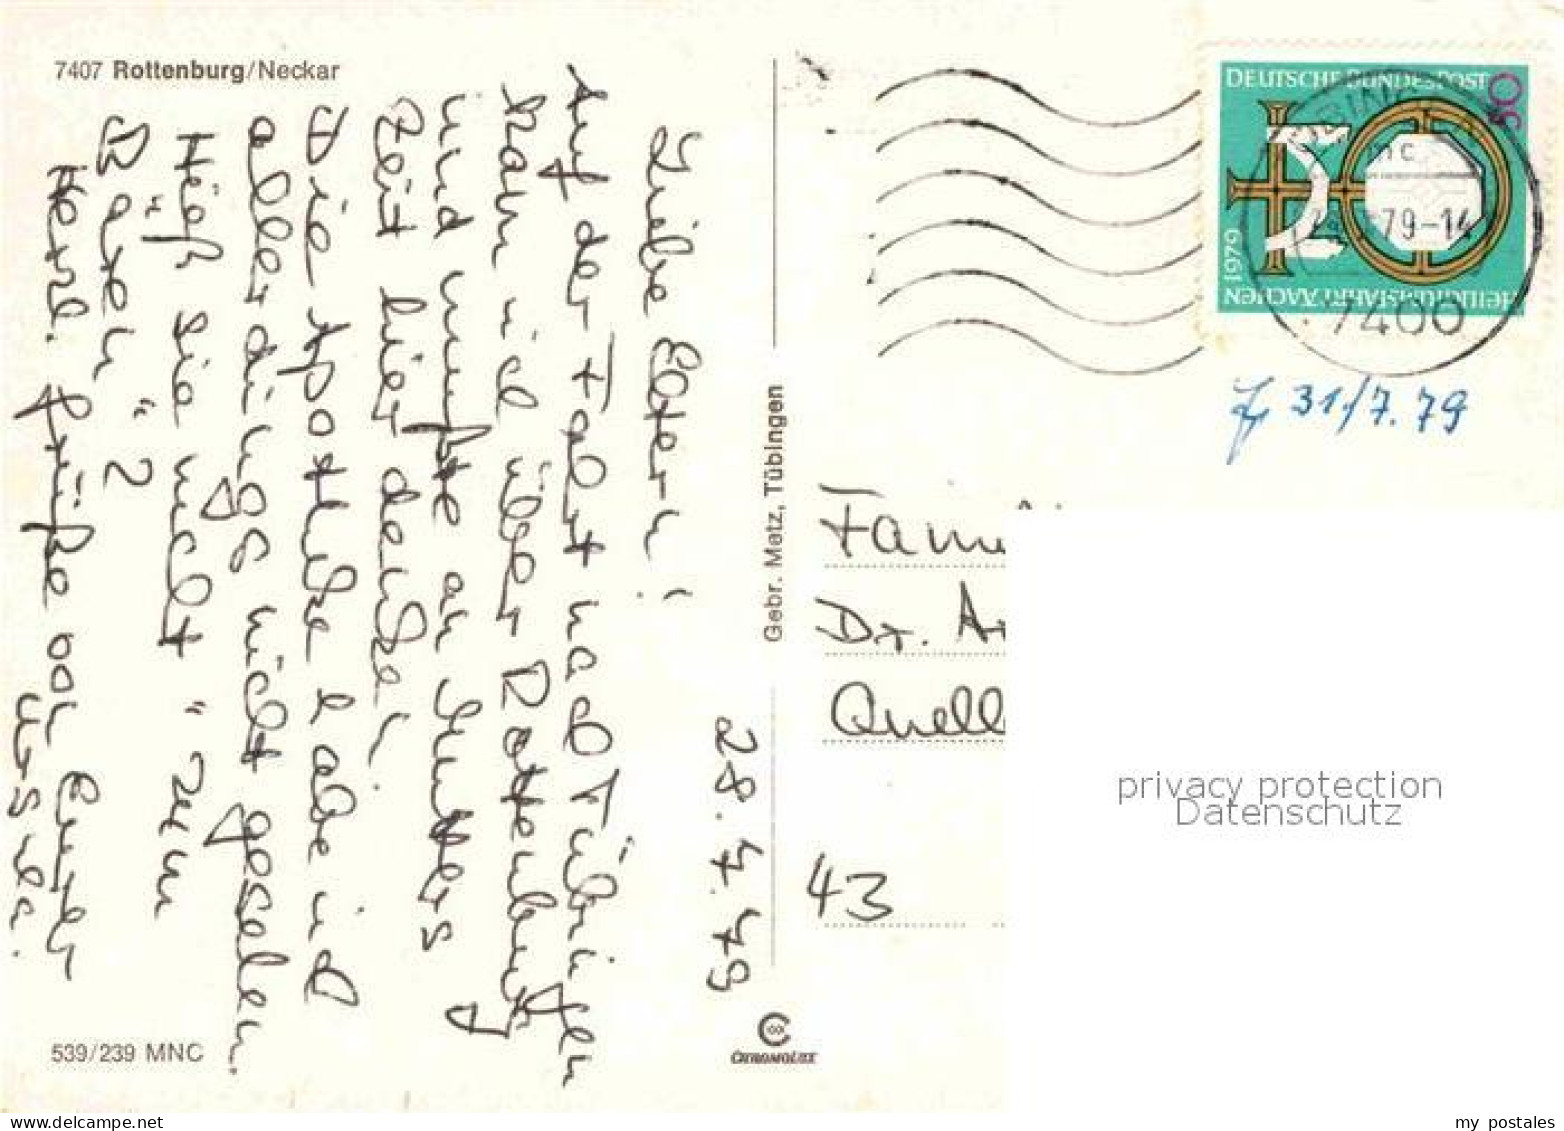 7407 Rottenburg/Neckar
28.7.79
Liebe Eltern!
Auf der Fahrt nach Tübingen
kam ich über Rottenburg
und mußte an Mutters
Zeit hier denken.
Die Apotheke habe ich
allerdings nicht gesehen.
Hieß sie nicht "zum
Bären"?
Herzl. Grüße von Eurer
Ursula.
539/239 MNC
Gebr. Metz, Tübingen
CHROMOLUX
DEUTSCHE BUNDESPOST
50
HEILIGTUMSFAHRT AACHEN
1979
79-14
7400
31/7.79
Fami
Dr.
Quell
43
privacy protection
Datenschutz
my postales